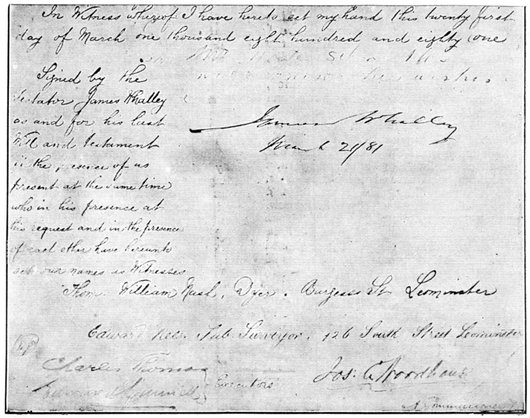 In Witness whereof I have hereto set my hand this twenty first
day of March one thousand eight hundred and eighty one
Signed by the
testator James Whalley
as and for his last
Will and testament
in the presence of us
present at the same time
who in his presence at
his request and in the presence
of each other have hereunto
set our names as Witnesses
James Whalley
March 21/81
Thom. William Nash, Dyer, Burgess St. Leominster
Edward Lee, Pub Surveyor, 126 South Street Leominster
Charles Thomas
Executors
Jos. Woodhouse
A Commissioner